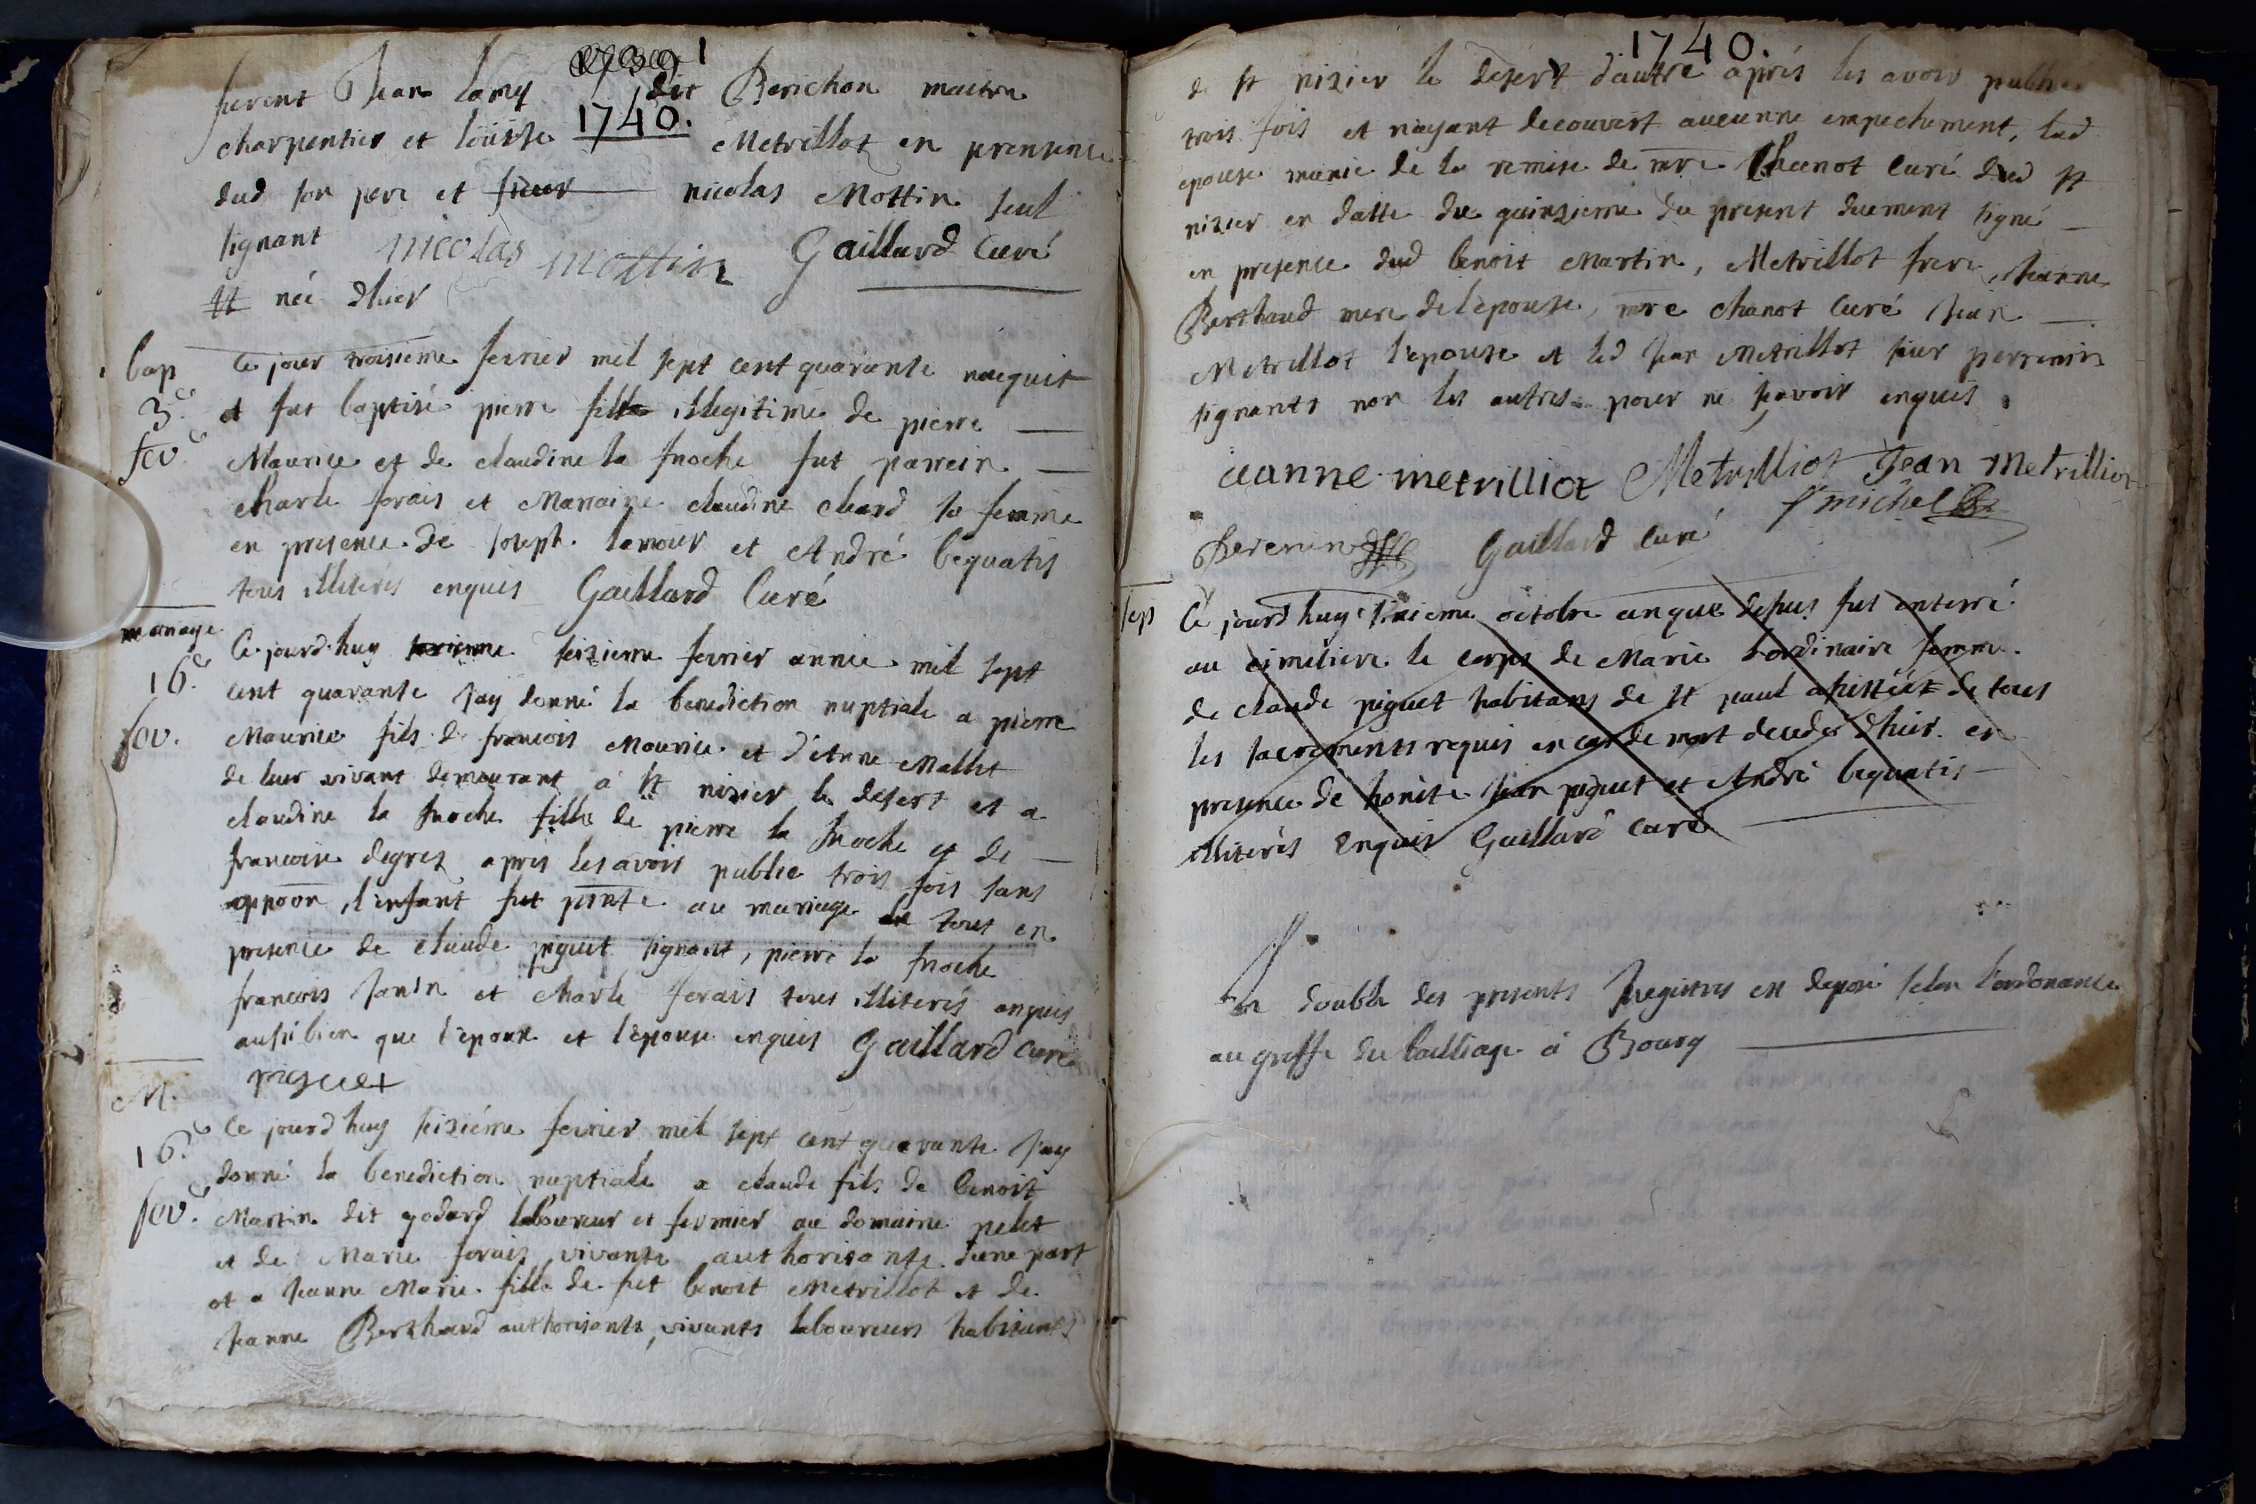 1740.
furent Jean lamy dit Berichon maitre
charpentier et loüise Metrillot en prensence
dud son pere et sieur nicolas Mottin seul
signant nicolas mottin Gaillard Curé
née d'hier
bap
3.e
fev.
Ce jour troisieme fevrier mil sept cent quarante nacquit
et fut baptisé pierre fille illegitime de pierre
Maurice et de claudine la fuoche fut parrein
charle forais et Marraine claudine chard sa femme
en presence de joseph lamour et André bequatis
tous illiterés enquis Gaillard Curé
mariage
16.e
fev.
Ce jourd'huy seizieme fevrier année mil sept
cent quarante j'ay donné la benediction nuptiale a pierre
Maurice fils de francois Maurice et d'Anne Mallet
de leur vivant demeurant a st nizier le desert et a
claudine la fuoche fille de pierre la fuoche et de
francoise degrez apres les avoir publie trois fois sans
oppoon, l'enfant fut pnte au mariage tous en
presence de claude piguet signant, pierre la fuoche
francois Janin et charle forais tous illiterés enquis
aussi bien que l'epoux et l'epouse enquis Gaillard Curé
piguet
M.
16.e
fev.
Ce jourd'huy seiziéme fevrier mil sept cent quarante j'ay
donné la benediction nuptiale a claude fils de benoit
Martin dit godard laboureur et fermier au domaine pelet
et de Marie forais vivante authorisante d'une part
et a Jeanne Marie fille de fut benoit Metrillot et de
Jeanne Berthaud authorisante, vivants laboureurs habitants
1740.
de st nizier le desert d'autre après les avoir publie
trois fois et n'ayant decouvert aucunne empechement, lad
epouse munie de la remise de mre Chanot curé dud st
nizier en datte du quinzieme du present duement signé
en presence dud benoit Martin, Metrillot frere, Jeanne
Berthaud mere de l'epouse, mre chanot curé Jean
Metrillot l'epouse et led Jean Metrillot sieur perrenin
signants non les autres pour ne sçavoir enquis
jeanne metrilliot Metrilliot Jean Metrilliot
Perenin Gaillard Curé f michel
sep
Ce jourd'huy sixieme octobre an que dessus fut enterré
au cimetiere le corps de Marie lordinaire femme
de claude piguet habitans de st paul assistée de tous
les sacrements requis en cas de mort decedée d'hier en
presence de honête jean piguet et André bequatis
illiterés enquis Gaillard curé
Un double des presents Registres en deposé selon l'ordonance
au greffe du bailliage à Bourg